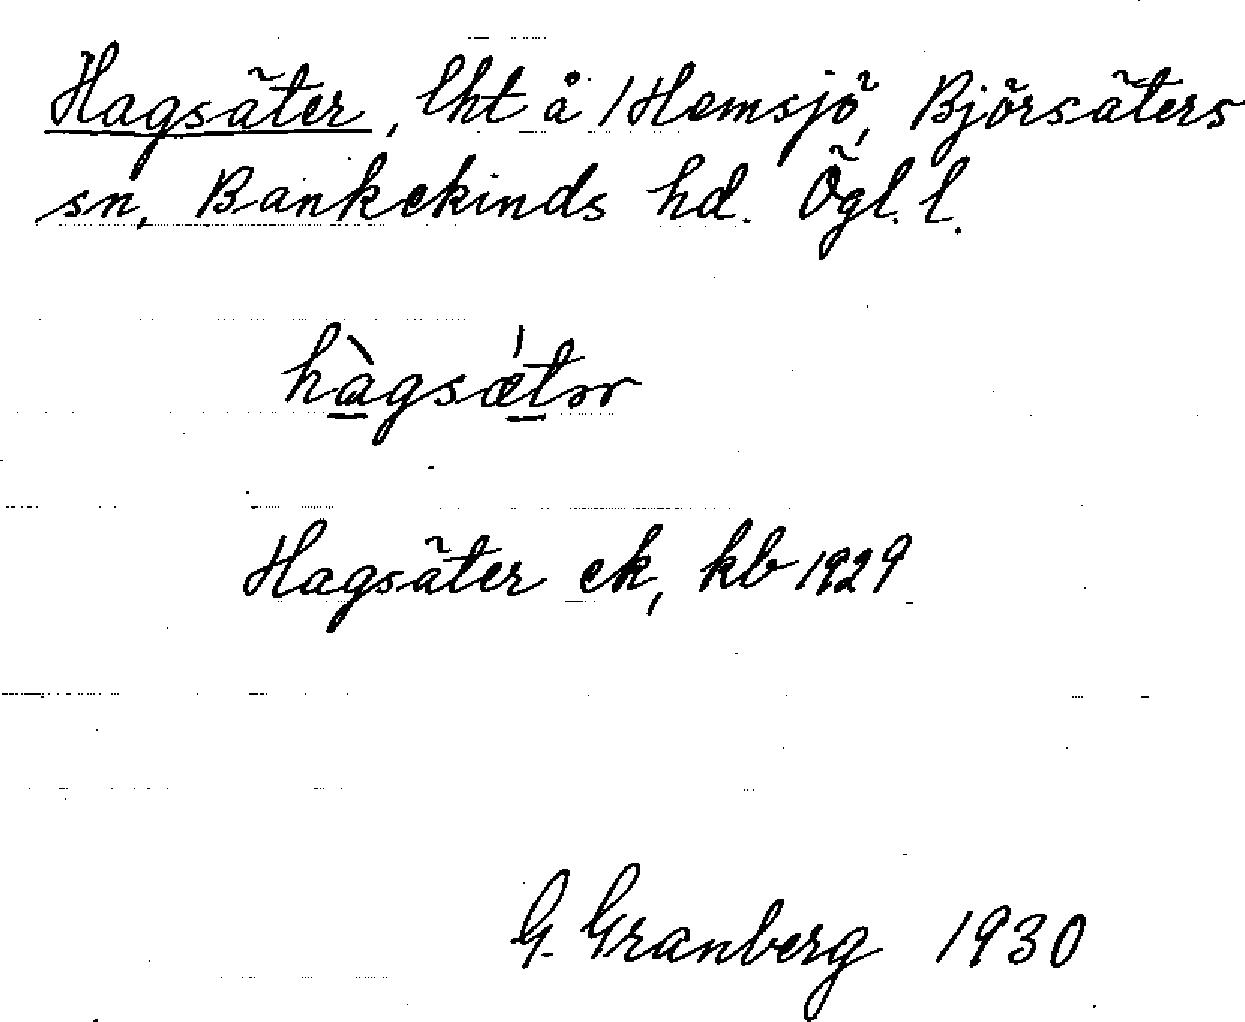 Hagsäter, lht å /Hemsjö, Björsäters
sn, Bankekinds hd. Ögl. l.
hàgsǽtər
Hagsäter ek, kb 1929
G. Granberg 1930